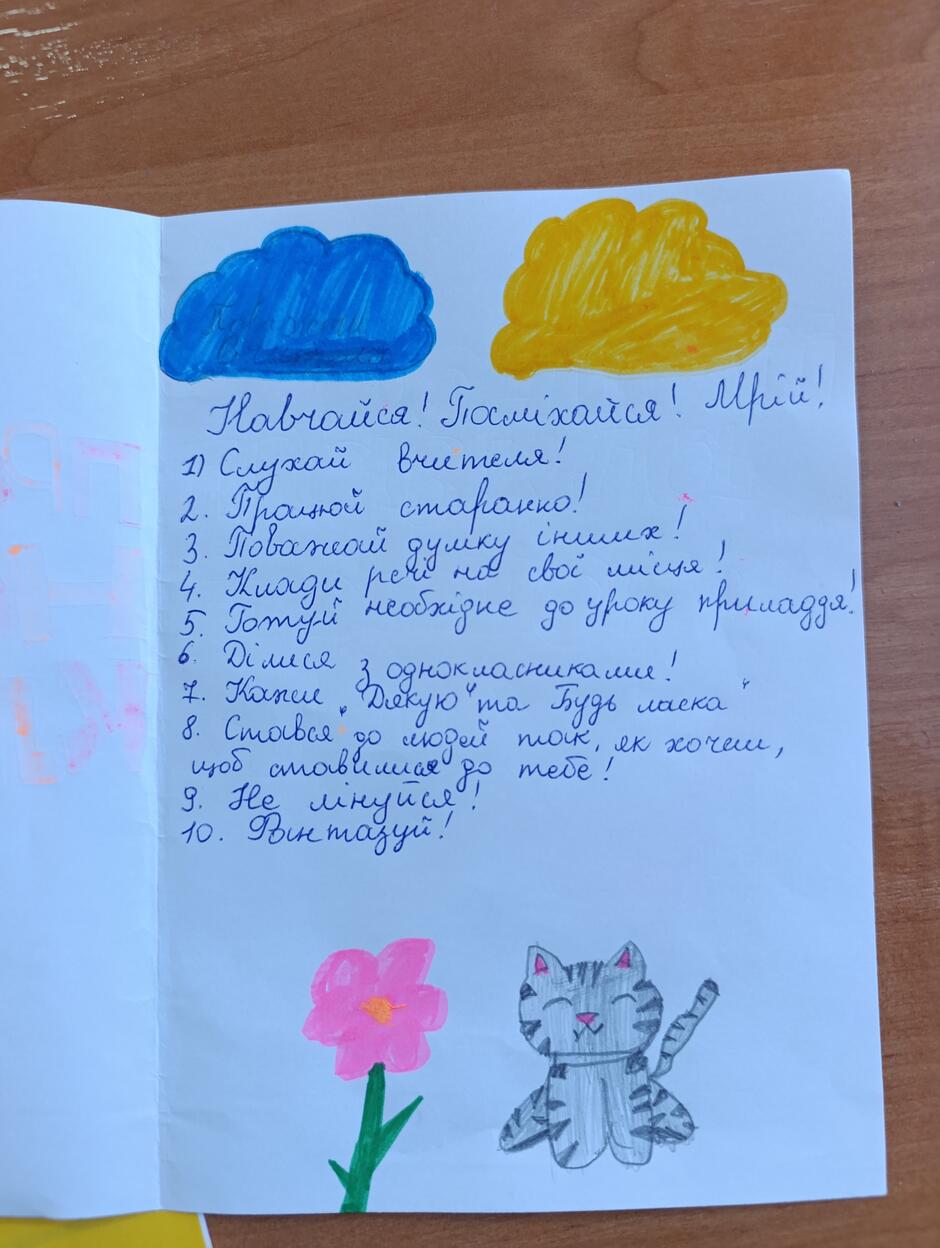 Поважати
Навчайся! Посміхайся! Мрій!
1) Слухай вчителя!
2. Працюй старанно!
3. Поважай думку інших!
4. Клади речі на свої місця!
5. Готуй необхідне до уроку приладдя!
6. Ділися з однокласниками!
7. Кажи „Дякую“ та „Будь ласка“
8. Стався до людей так, як хочеш,
щоб ставилися до тебе!
9. Не лінуйся!
10. Фантазуй!